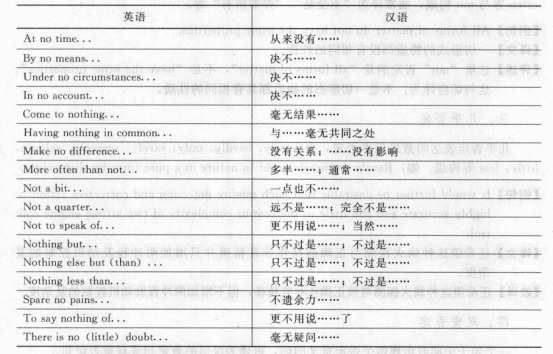 英语 汉语
At no time... 从来没有……
By no means... 决不……
Under no circumstances... 决不……
In no account... 决不……
Come to nothing... 毫无结果……
Having nothing in common... 与……毫无共同之处
Make no difference... 没有关系；……没有影响
More often than not... 多半……；通常……
Not a bit... 一点也不……
Not a quarter... 远不是……；完全不是……
Not to speak of... 更不用说……；当然……
Nothing but... 只不过是……；不过是……
Nothing else but（than）... 只不过是……；不过是……
Nothing less than... 只不过是……；不过是……
Spare no pains... 不遗余力……
To say nothing of... 更不用说……了
There is no（little）doubt... 毫无疑问……